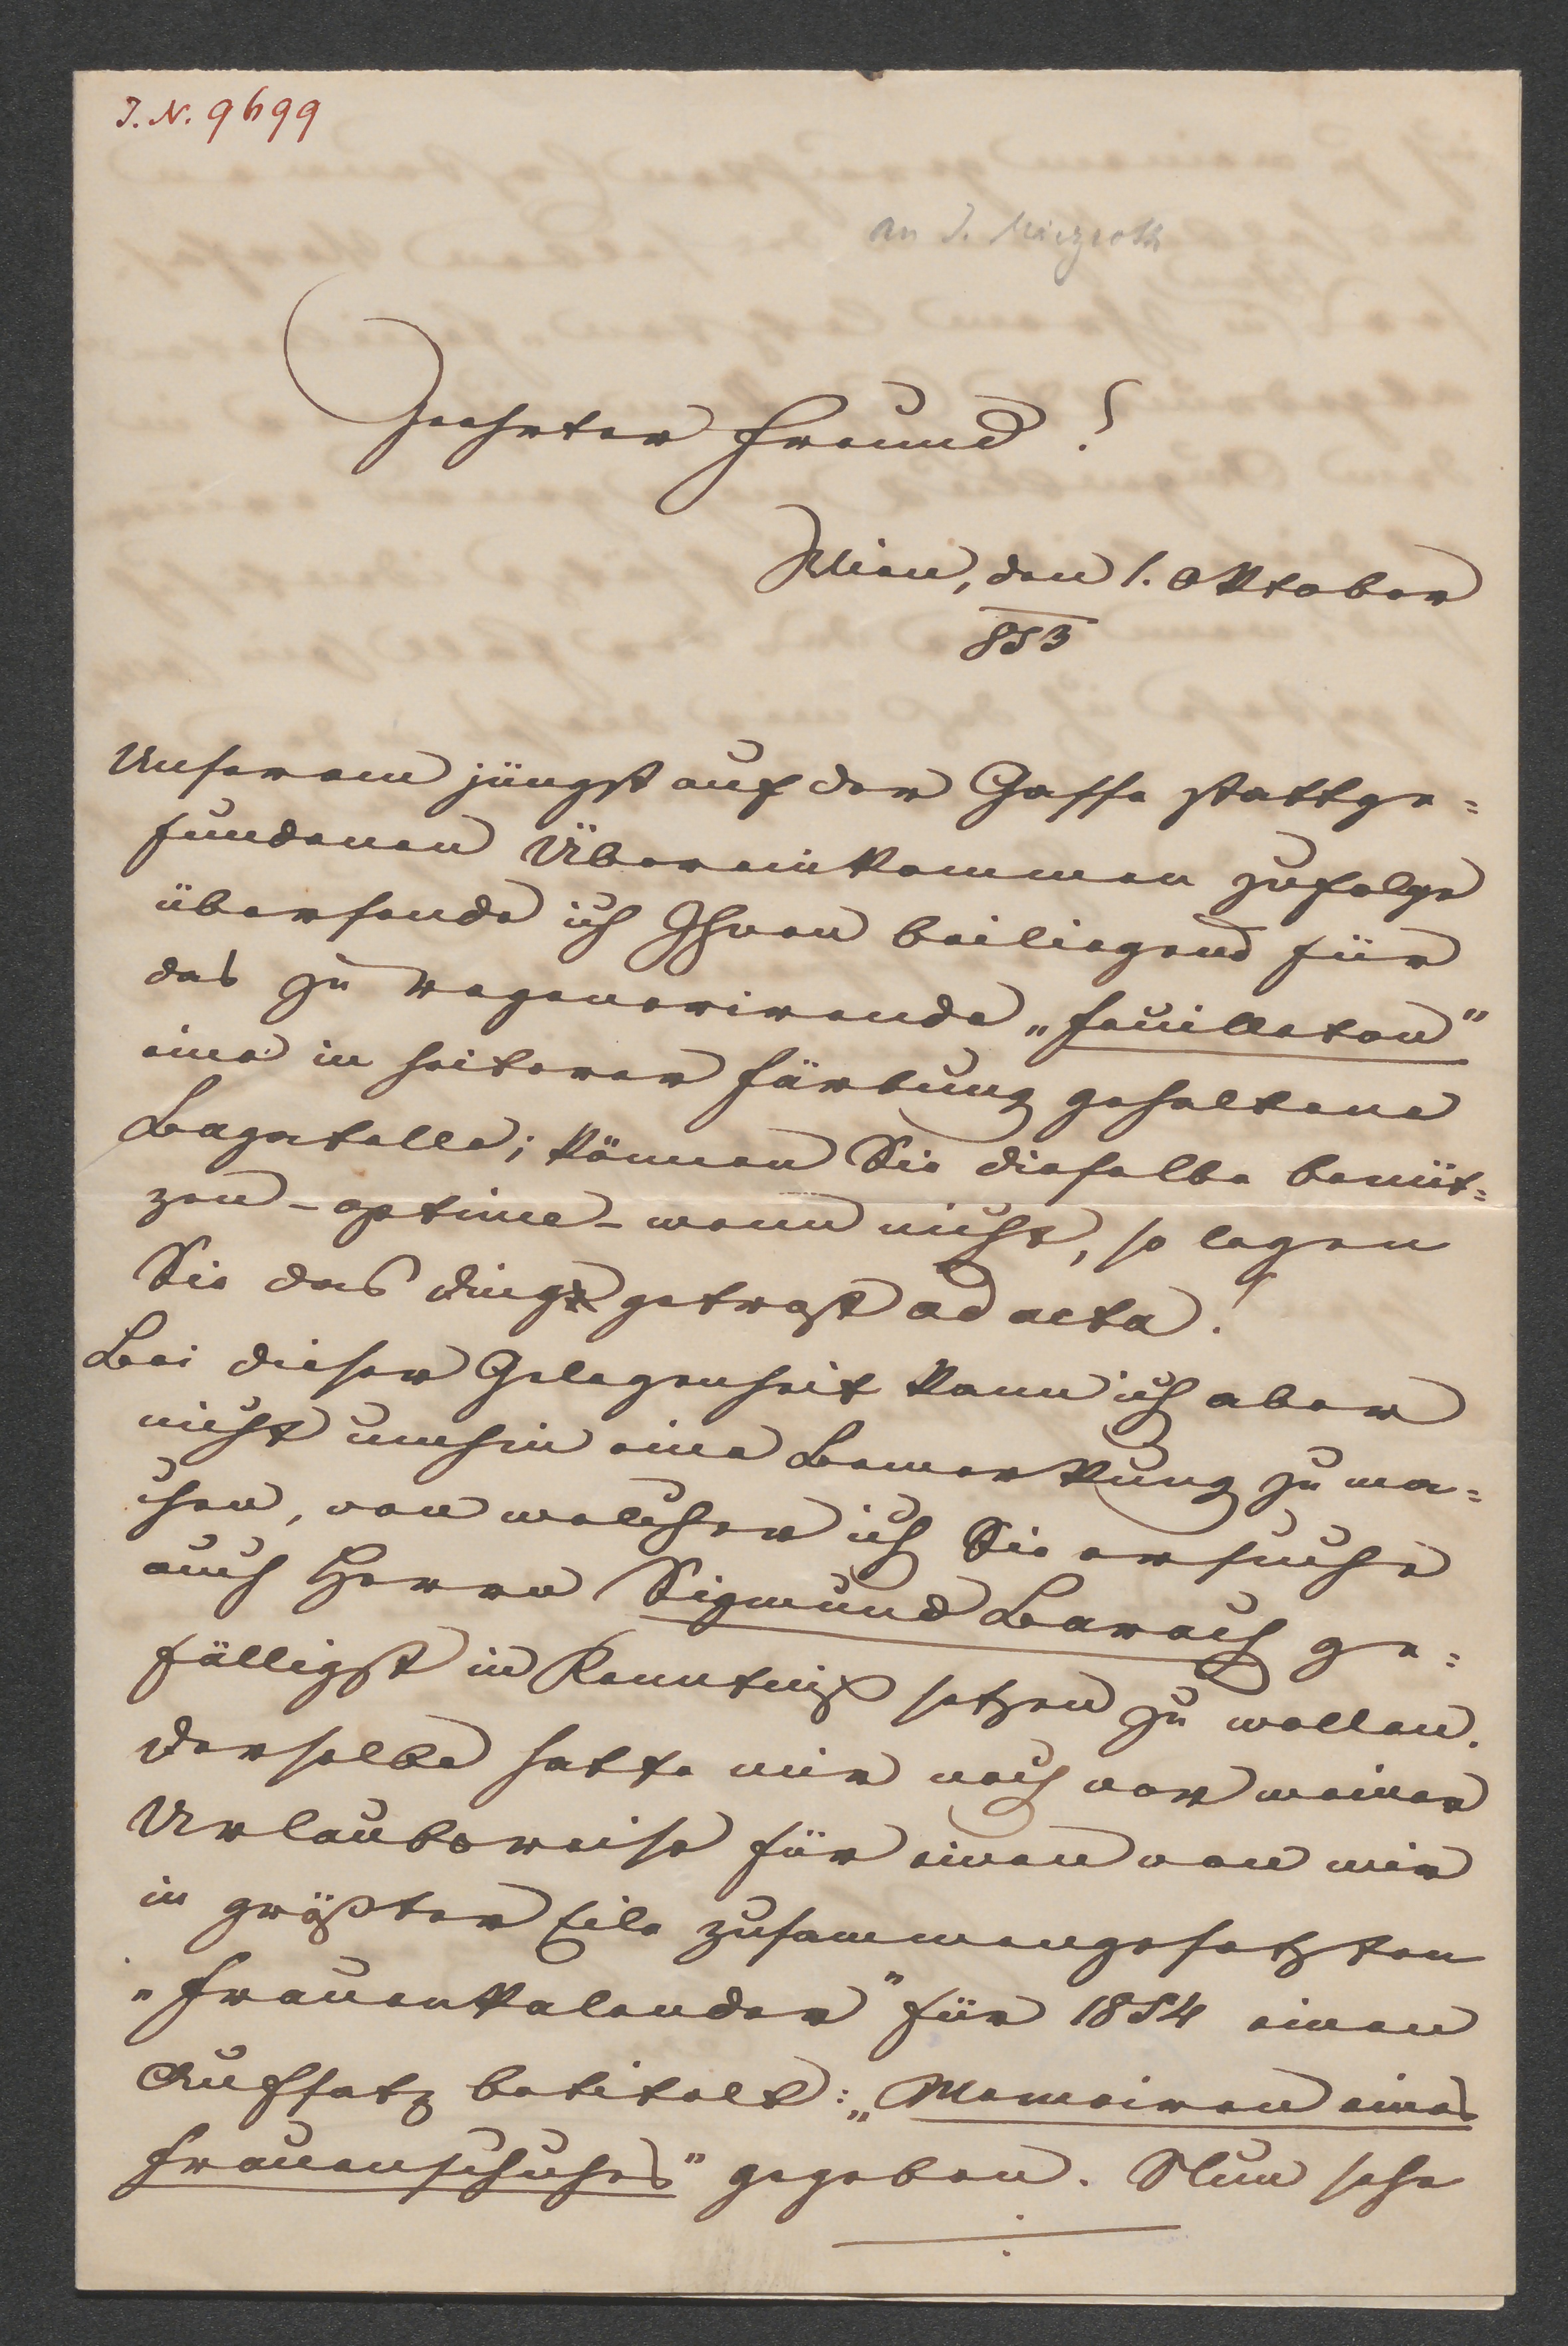 I. N. 9699
an J. Märzroth
Geehrter Freund!
Wien, den 1. Oktober
853
Unserem jüngst auf der Gasse stattge=
fundenen Übereinkommen zufolge
übersende ich Ihnen beiliegend für
das zu regenerirende „Feuilleton"
eine in heiterer Färbung gehaltene
Bagatelle; können Sie dieselbe benüt=
zen - optime - wenn nicht, so legen
Sie das Ding getrost ad acta!
Bei dieser Gelegenheit kann ich aber
nicht umhin eine Bemerkung zu ma=
chen, von welcher ich Sie ersuche
auch Herrn Sigmund Barach ge=
fälligst in Kenntniß setzen zu wollen.
Derselbe hatte mir noch vor meiner
Urlaubsreise für einen von mir
in größter Eile zusammengesetzten
„Frauenkalender" für 1854 einen
Aufsatz betitelt: „Memoiren eines
Frauenschuhes" gegeben. Nun sehe